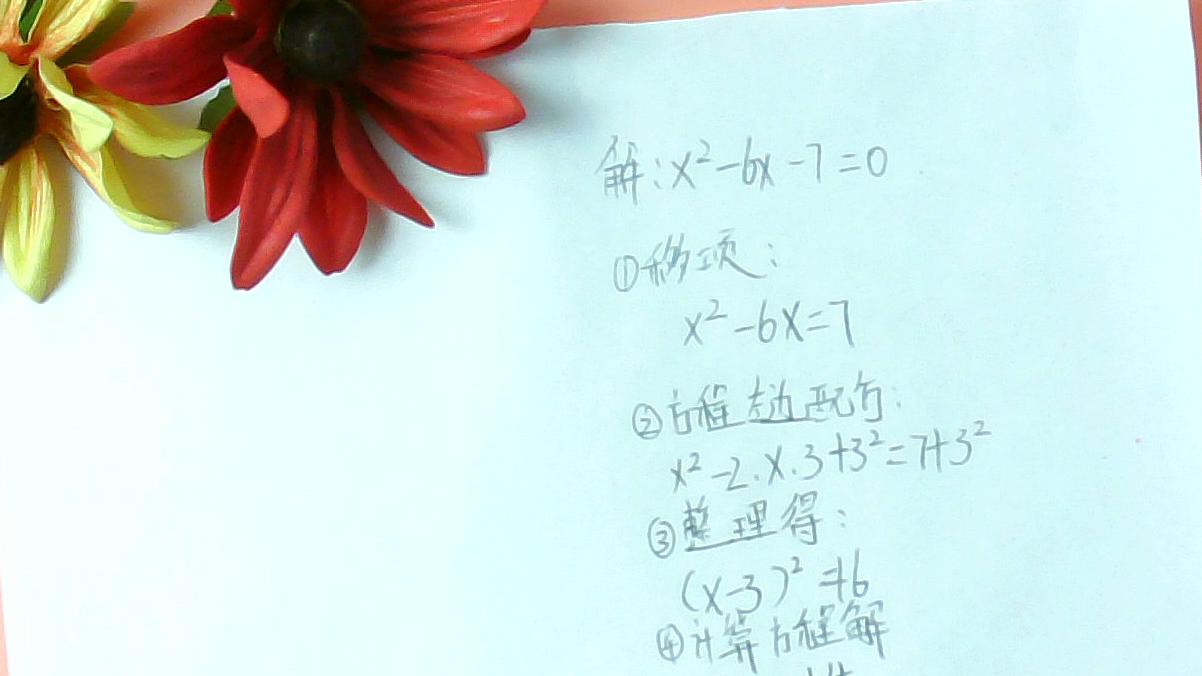 解:x²-6x-7=0
①移项:
x²-6x=7
②方程左边配方:
x²-2.x.3+3²=7+3²
③整理得:
(x-3)²=16
④计算方程解